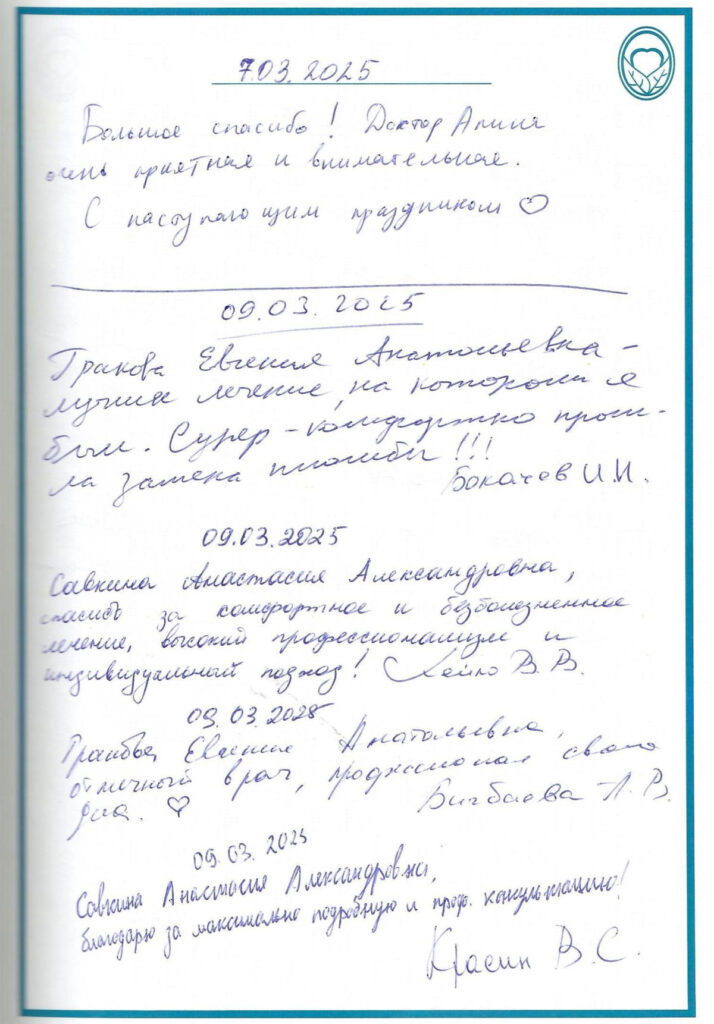 7.03.2025
Большое спасибо! Доктор Алина
очень приятная и внимательная.
С наступающим праздником ♡
09.03.2025
Гракова Евгения Анатольевна -
лучшее лечение, на котором я
был. Супер - комфортно прош-
ла замена пломбы!!!
Бокачев И.И.
09.03.2025
Савкина Анастасия Александровна,
спасибо за комфортное и безболезненное
лечение, высокий профессионализм и
индивидуальный подход! В.В.
09.03.2025
Евгения Анатольевна,
отличный врач, своего
дела. ♡ Л.В.
09.03.2025
Савкина Анастасия Александровна,
благодарю за максимально подробную и проф. консультацию!
Красин В.С.